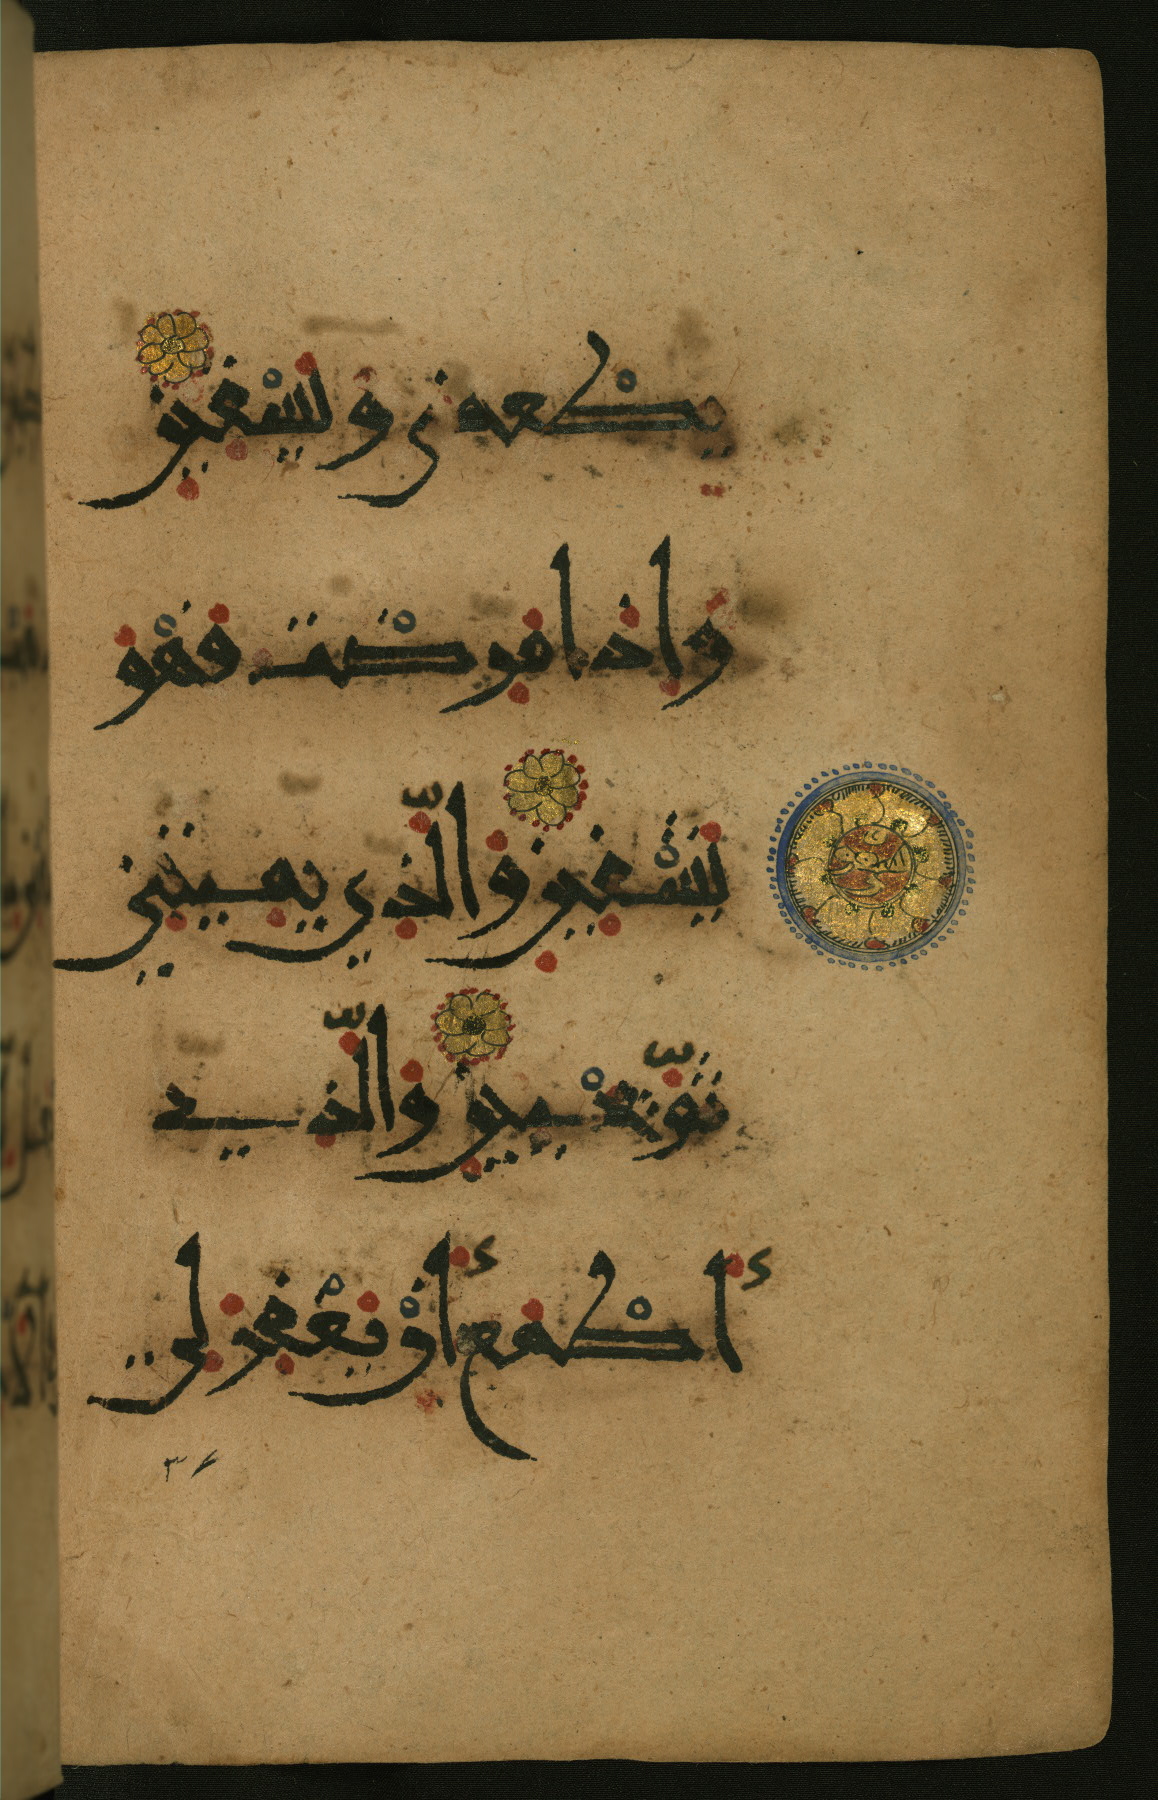 يطعمني ويسقين
واذا مرضت فهو
يشفين والذي يميتني
ثم يحيين والذي
أطمع أن يغفر لي